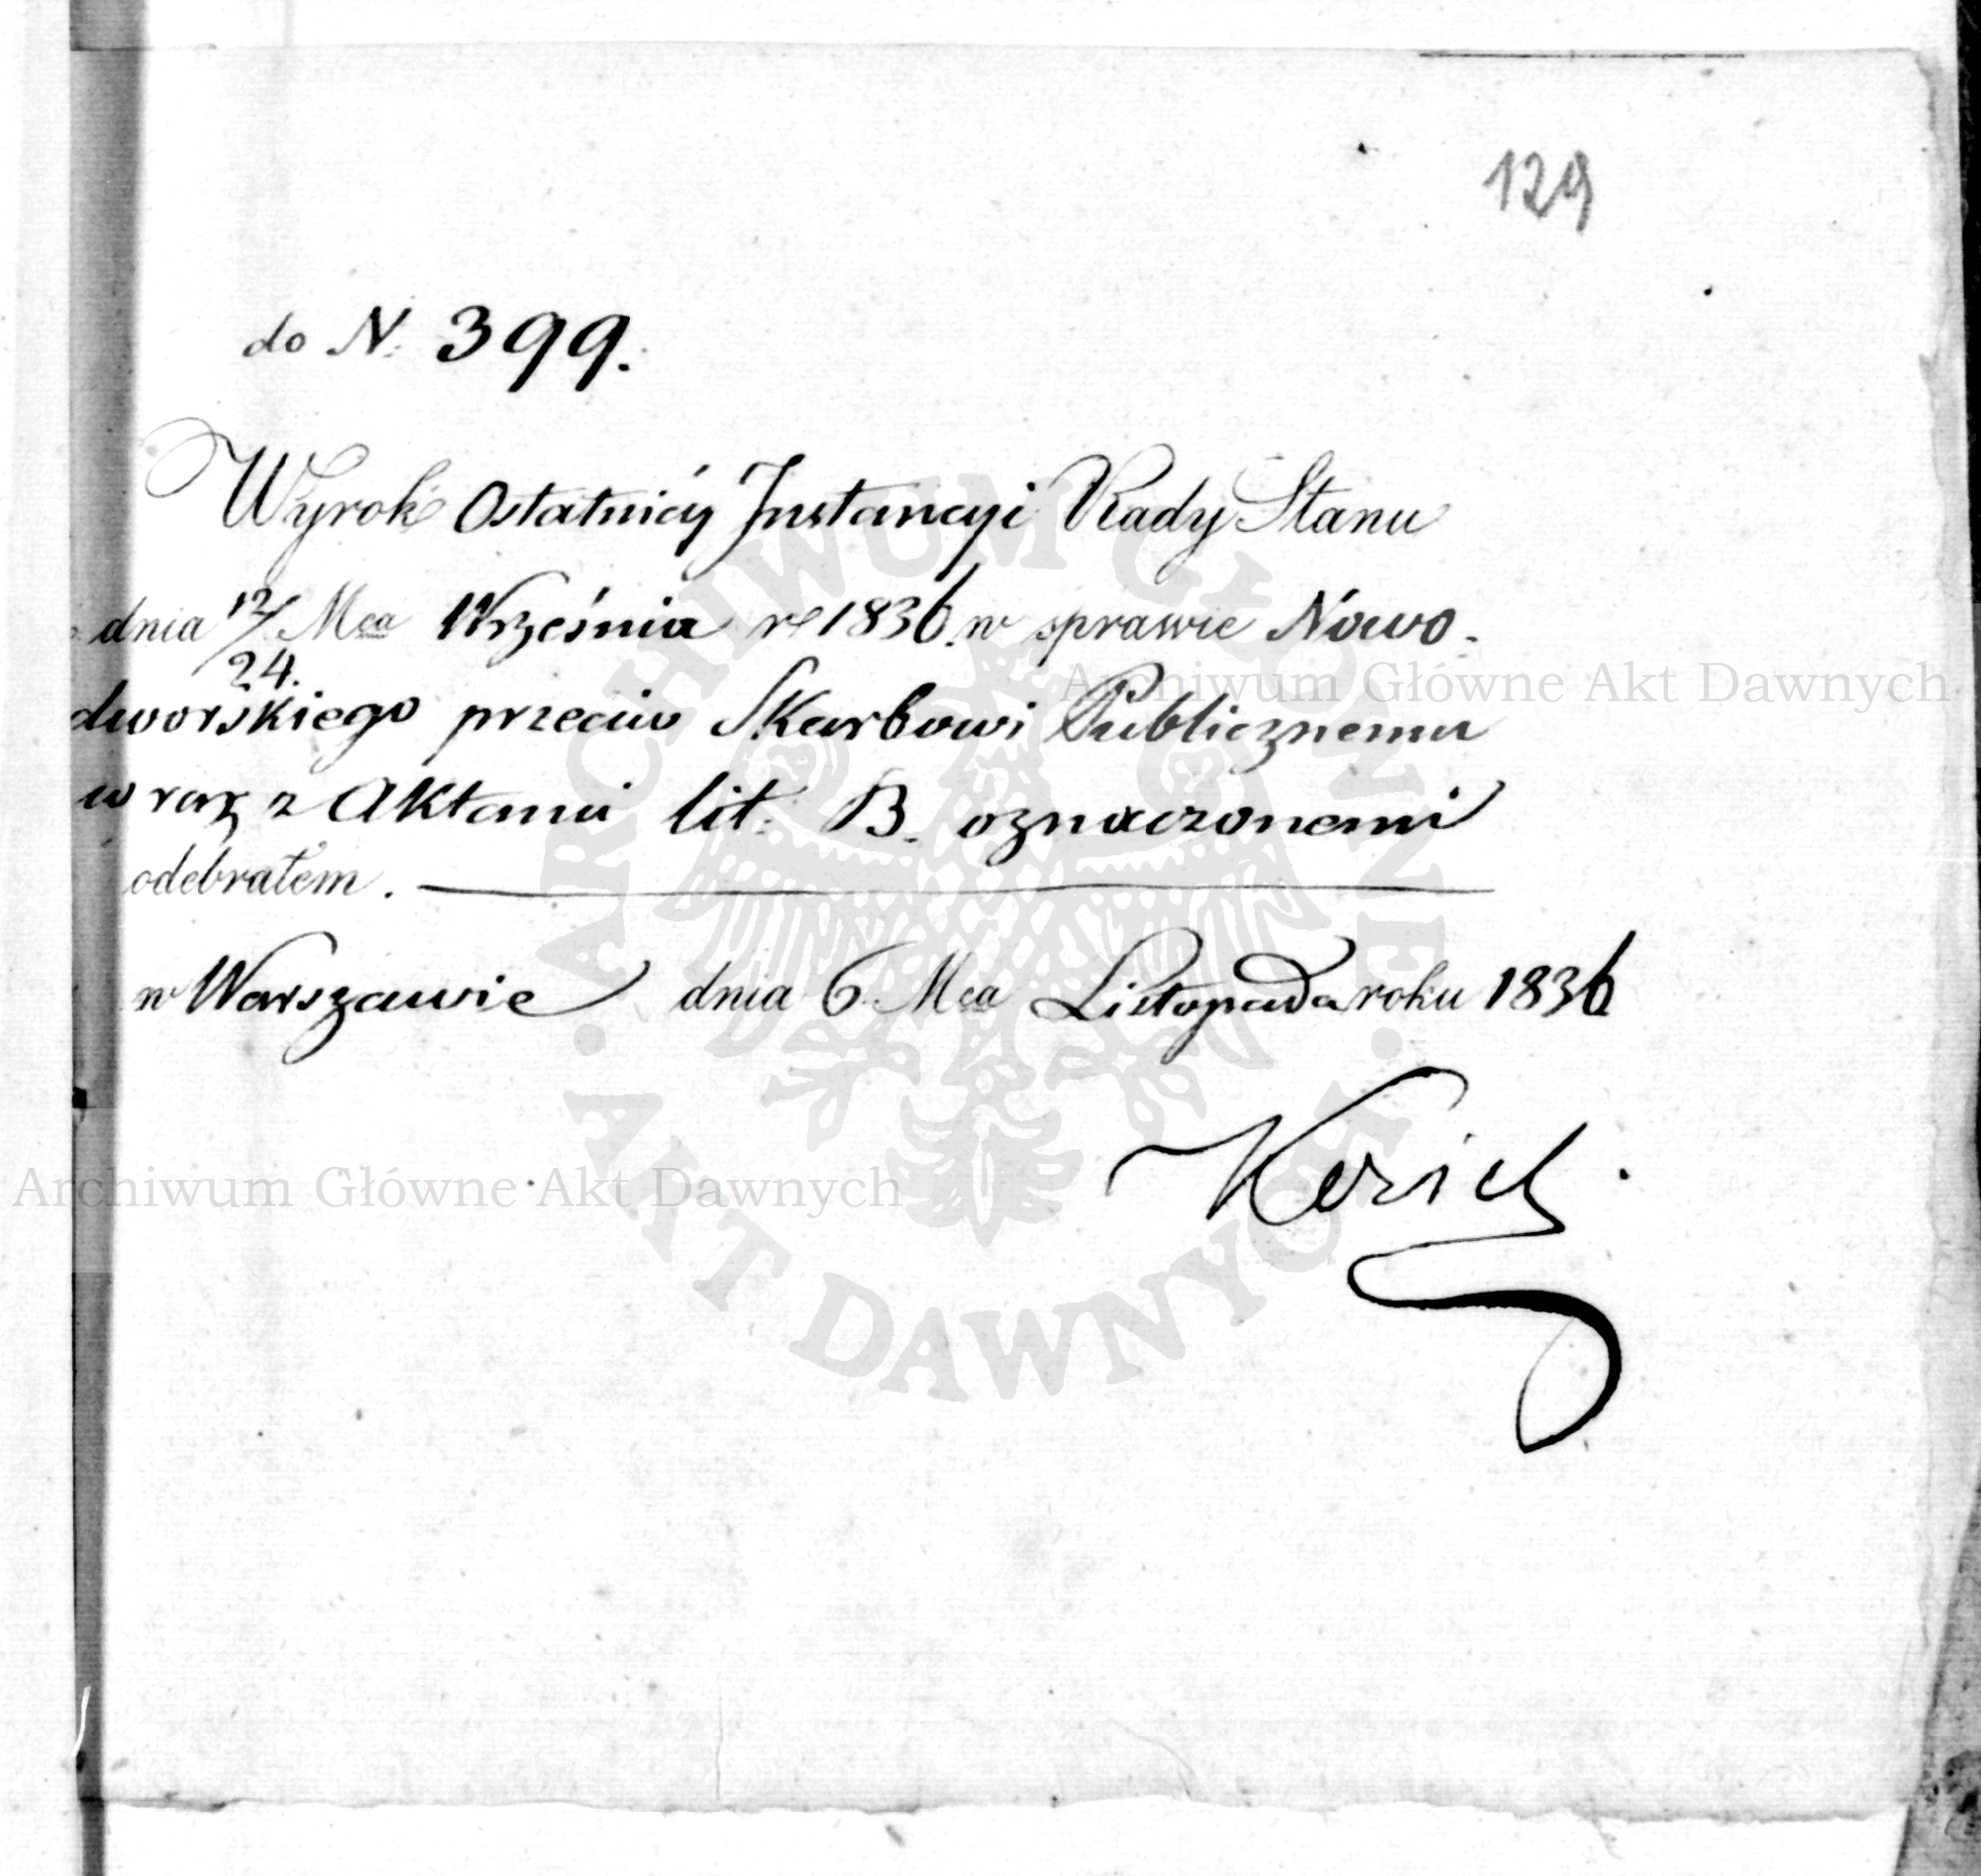 129
do N. 399.
Wyrok Ostatniéy Instancyi Rady Stanu
dnia 12/24. Mca Września r. 1836. w sprawie Nowo-
dworskiego przeciw Skarbowi Publicznemu
wraz z Aktami lit: B. oznaczonemi
odebrałem.
w Warszawie dnia 6 Mca Listopada roku 1836
ARCHIWUM GŁÓWNE
AKT DAWNYCH
Archiwum Główne Akt Dawnych
Archiwum Główne Akt Dawnych